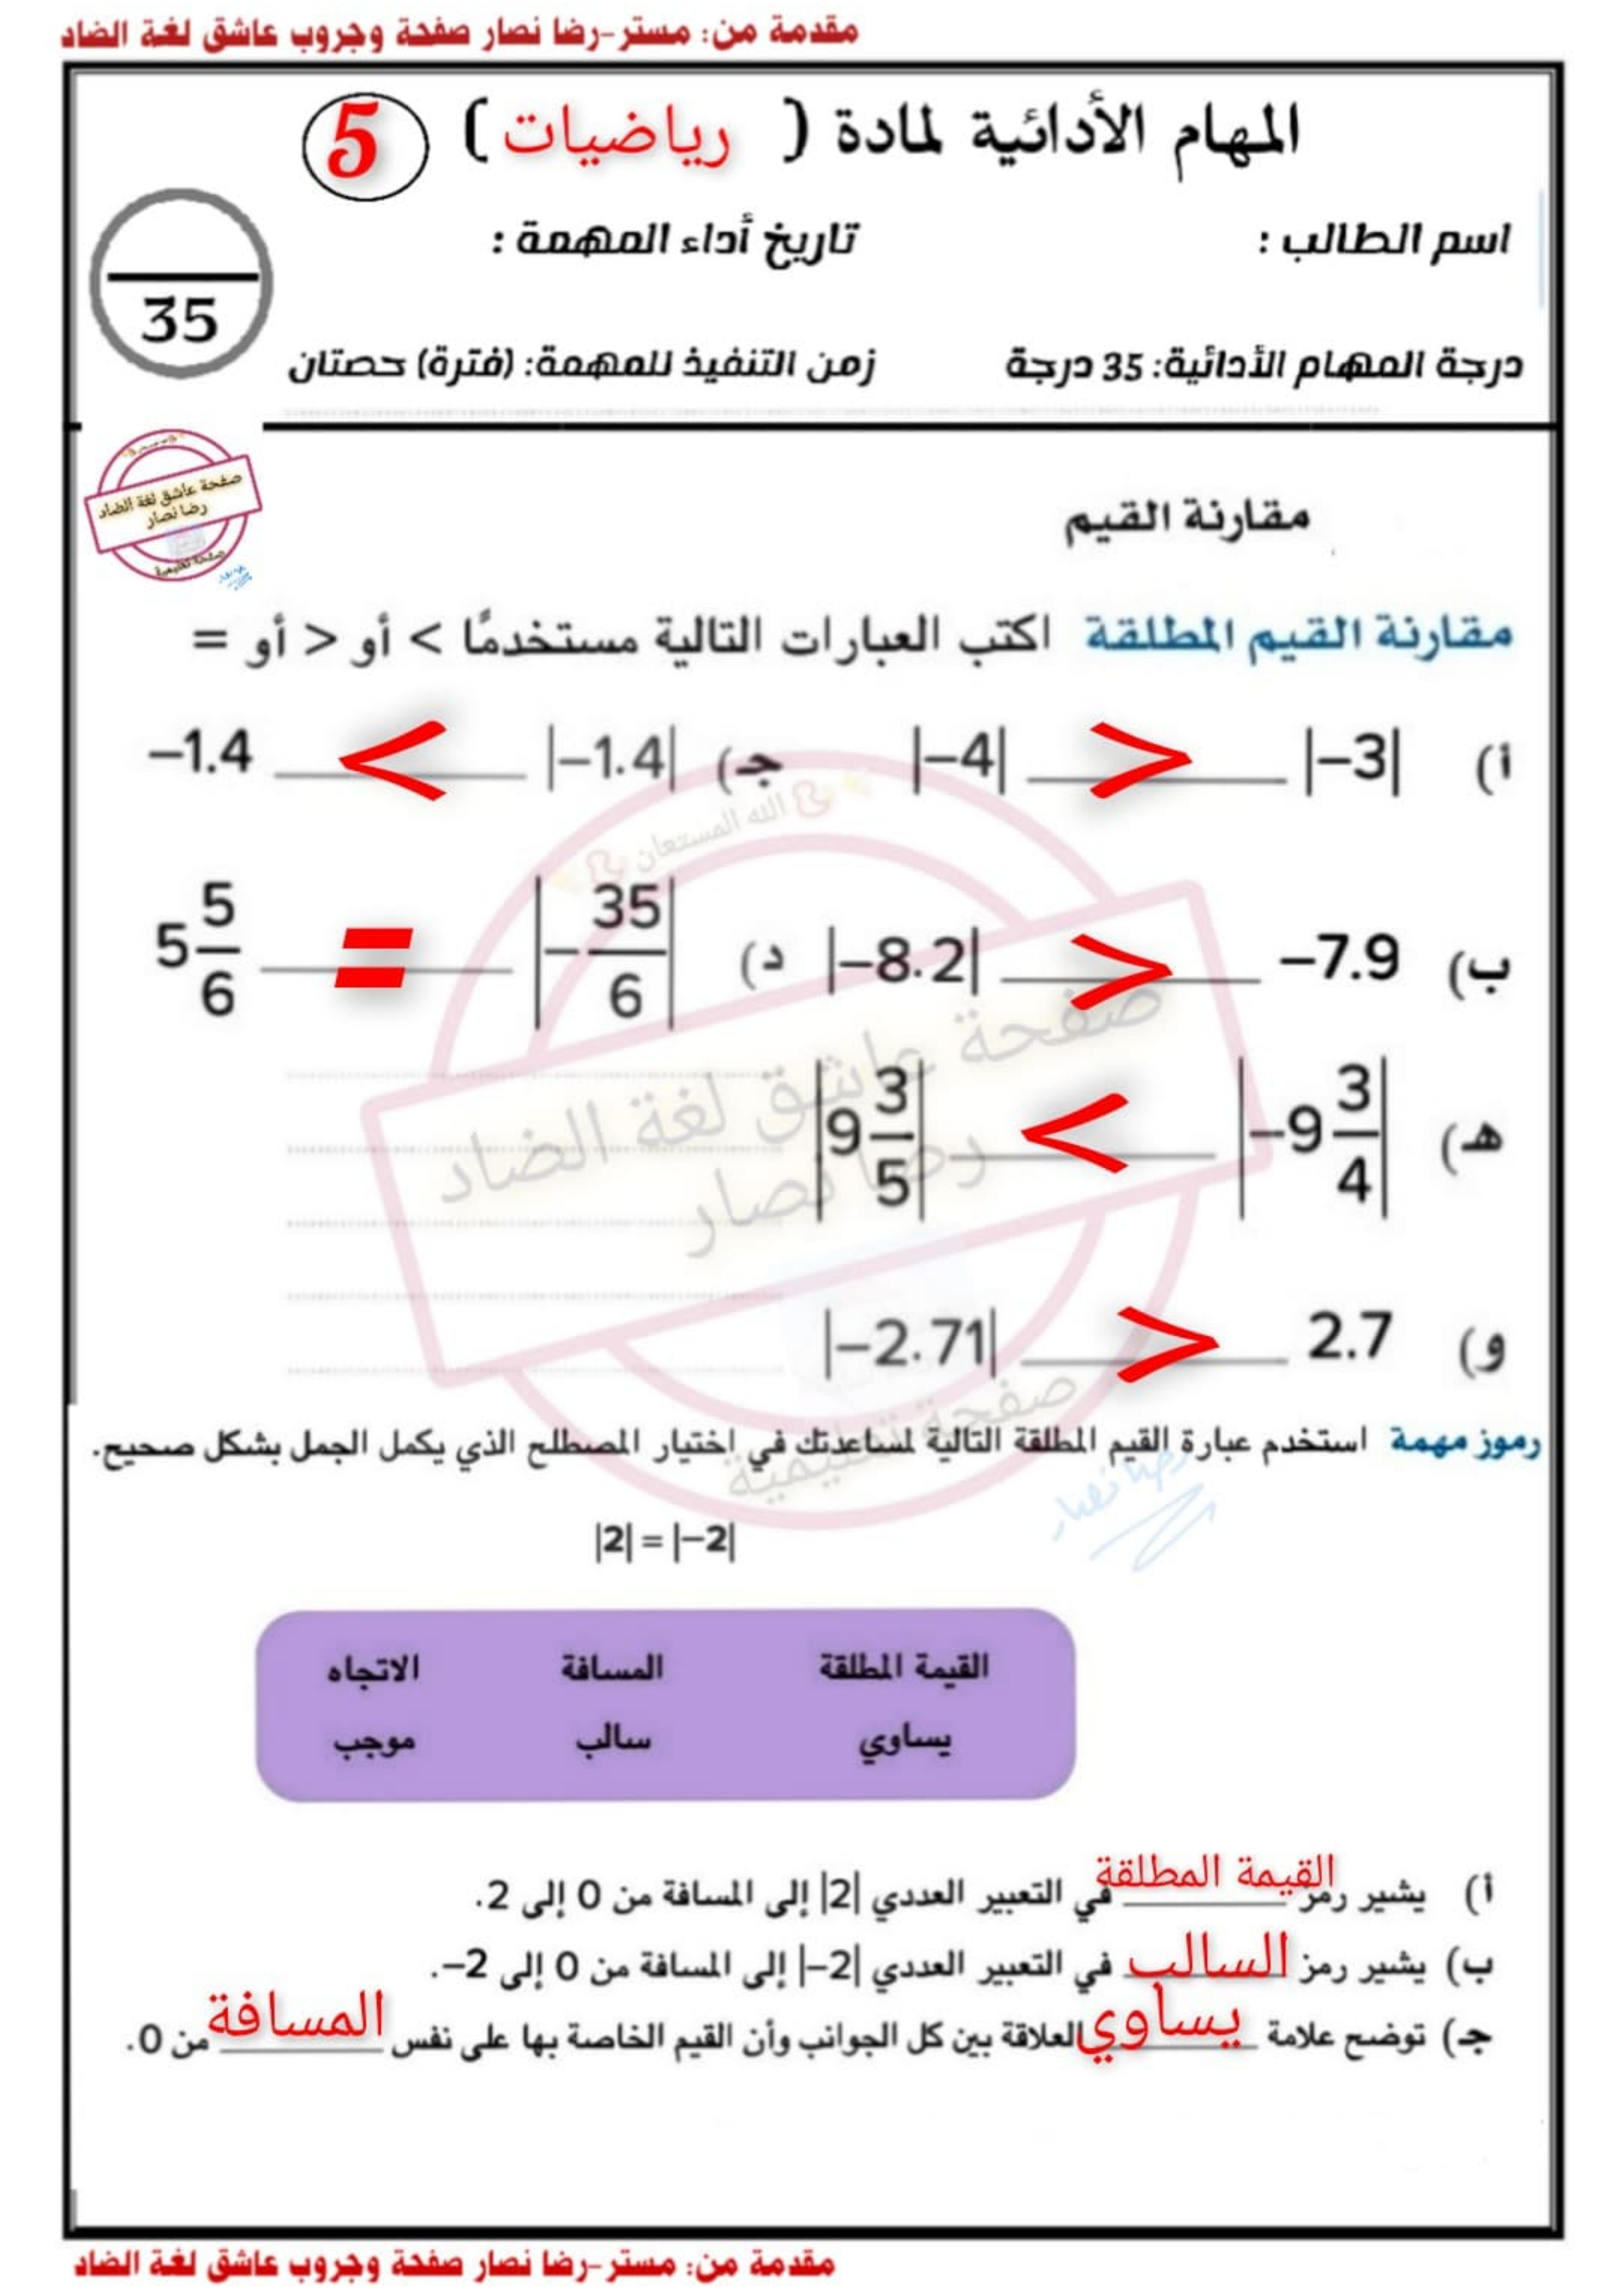 مقدمة من: مستر-رضا نصار صفحة وجروب عاشق لغة الضاد
المهام الأدائية لمادة ( رياضيات ) 5
اسم الطالب : تاريخ أداء المهمة :
35
درجة المهام الأدائية: 35 درجة زمن التنفيذ للمهمة: (فترة) حصتان
صفحة عاشق لغة الضاد
رضا نصار
صفحة تعليمية
مقارنة القيم
مقارنة القيم المطلقة اكتب العبارات التالية مستخدمًا > أو < أو =
أ) |−3| > |−4| جـ) |−1.4| < −1.4
ب) −7.9 > |−8.2| د) |−35/6| = 5 5/6
هـ) |−9 3/4| < |9 3/5|
و) 2.7 > |−2.71|
الله المستعان
صفحة عاشق لغة الضاد
رضا نصار
صفحة تعليمية
رضا نصار
رموز مهمة استخدم عبارة القيم المطلقة التالية لمساعدتك في اختيار المصطلح الذي يكمل الجمل بشكل صحيح.
|2| = |−2|
القيمة المطلقة المسافة الاتجاه
يساوي سالب موجب
أ) يشير رمز القيمة المطلقة في التعبير العددي |2| إلى المسافة من 0 إلى 2.
ب) يشير رمز السالب في التعبير العددي |−2| إلى المسافة من 0 إلى −2.
جـ) توضح علامة يساوي العلاقة بين كل الجوانب وأن القيم الخاصة بها على نفس المسافة من 0.
مقدمة من: مستر-رضا نصار صفحة وجروب عاشق لغة الضاد